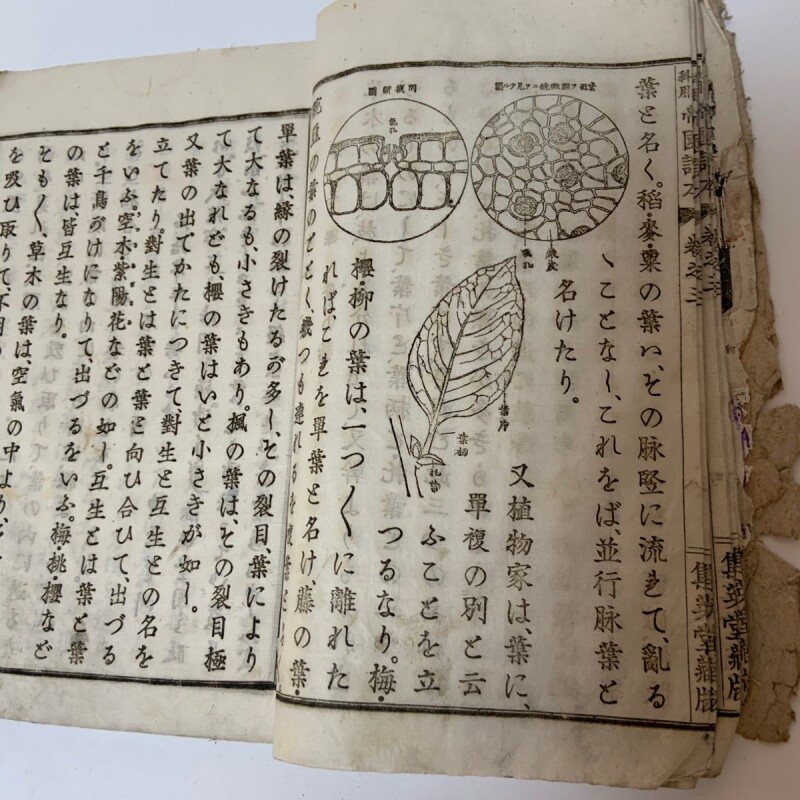 葉と名く。稻・麥・粟の葉ハ、その脉竪に流きて、亂る
ヽことなく、これをば、並行脉葉と
名けたり。
又植物家は、葉に、
單複の別と云
ふことを立
つるなり。梅・
櫻・柳の葉は、一つ〱に離れた
れば、これを單葉と名け、藤の葉・
豆の葉のごとく、幾つも連れる
氣孔
葉片
葉柄
托葉
集英堂藏版
集英堂藏版
單葉は、縁の裂けたるが多し、その裂目、葉により
て大なるも、小さきもあり。楓の葉は、その裂目極
て大なれども、櫻の葉はいと小さきが如し。
又葉の出でかたにつきて、對生と互生との名を
立てたり。對生とは葉と葉と向ひ合ひて、出づる
をいふ。空木・紫陽花などの如し。互生とは葉と葉
と千鳥がけになりて、出づるをいふ。梅・桃・櫻など
の葉は、皆互生なり。
そも〱、草木の葉は、空氣の中より、
を吸ひ取りて、不用の